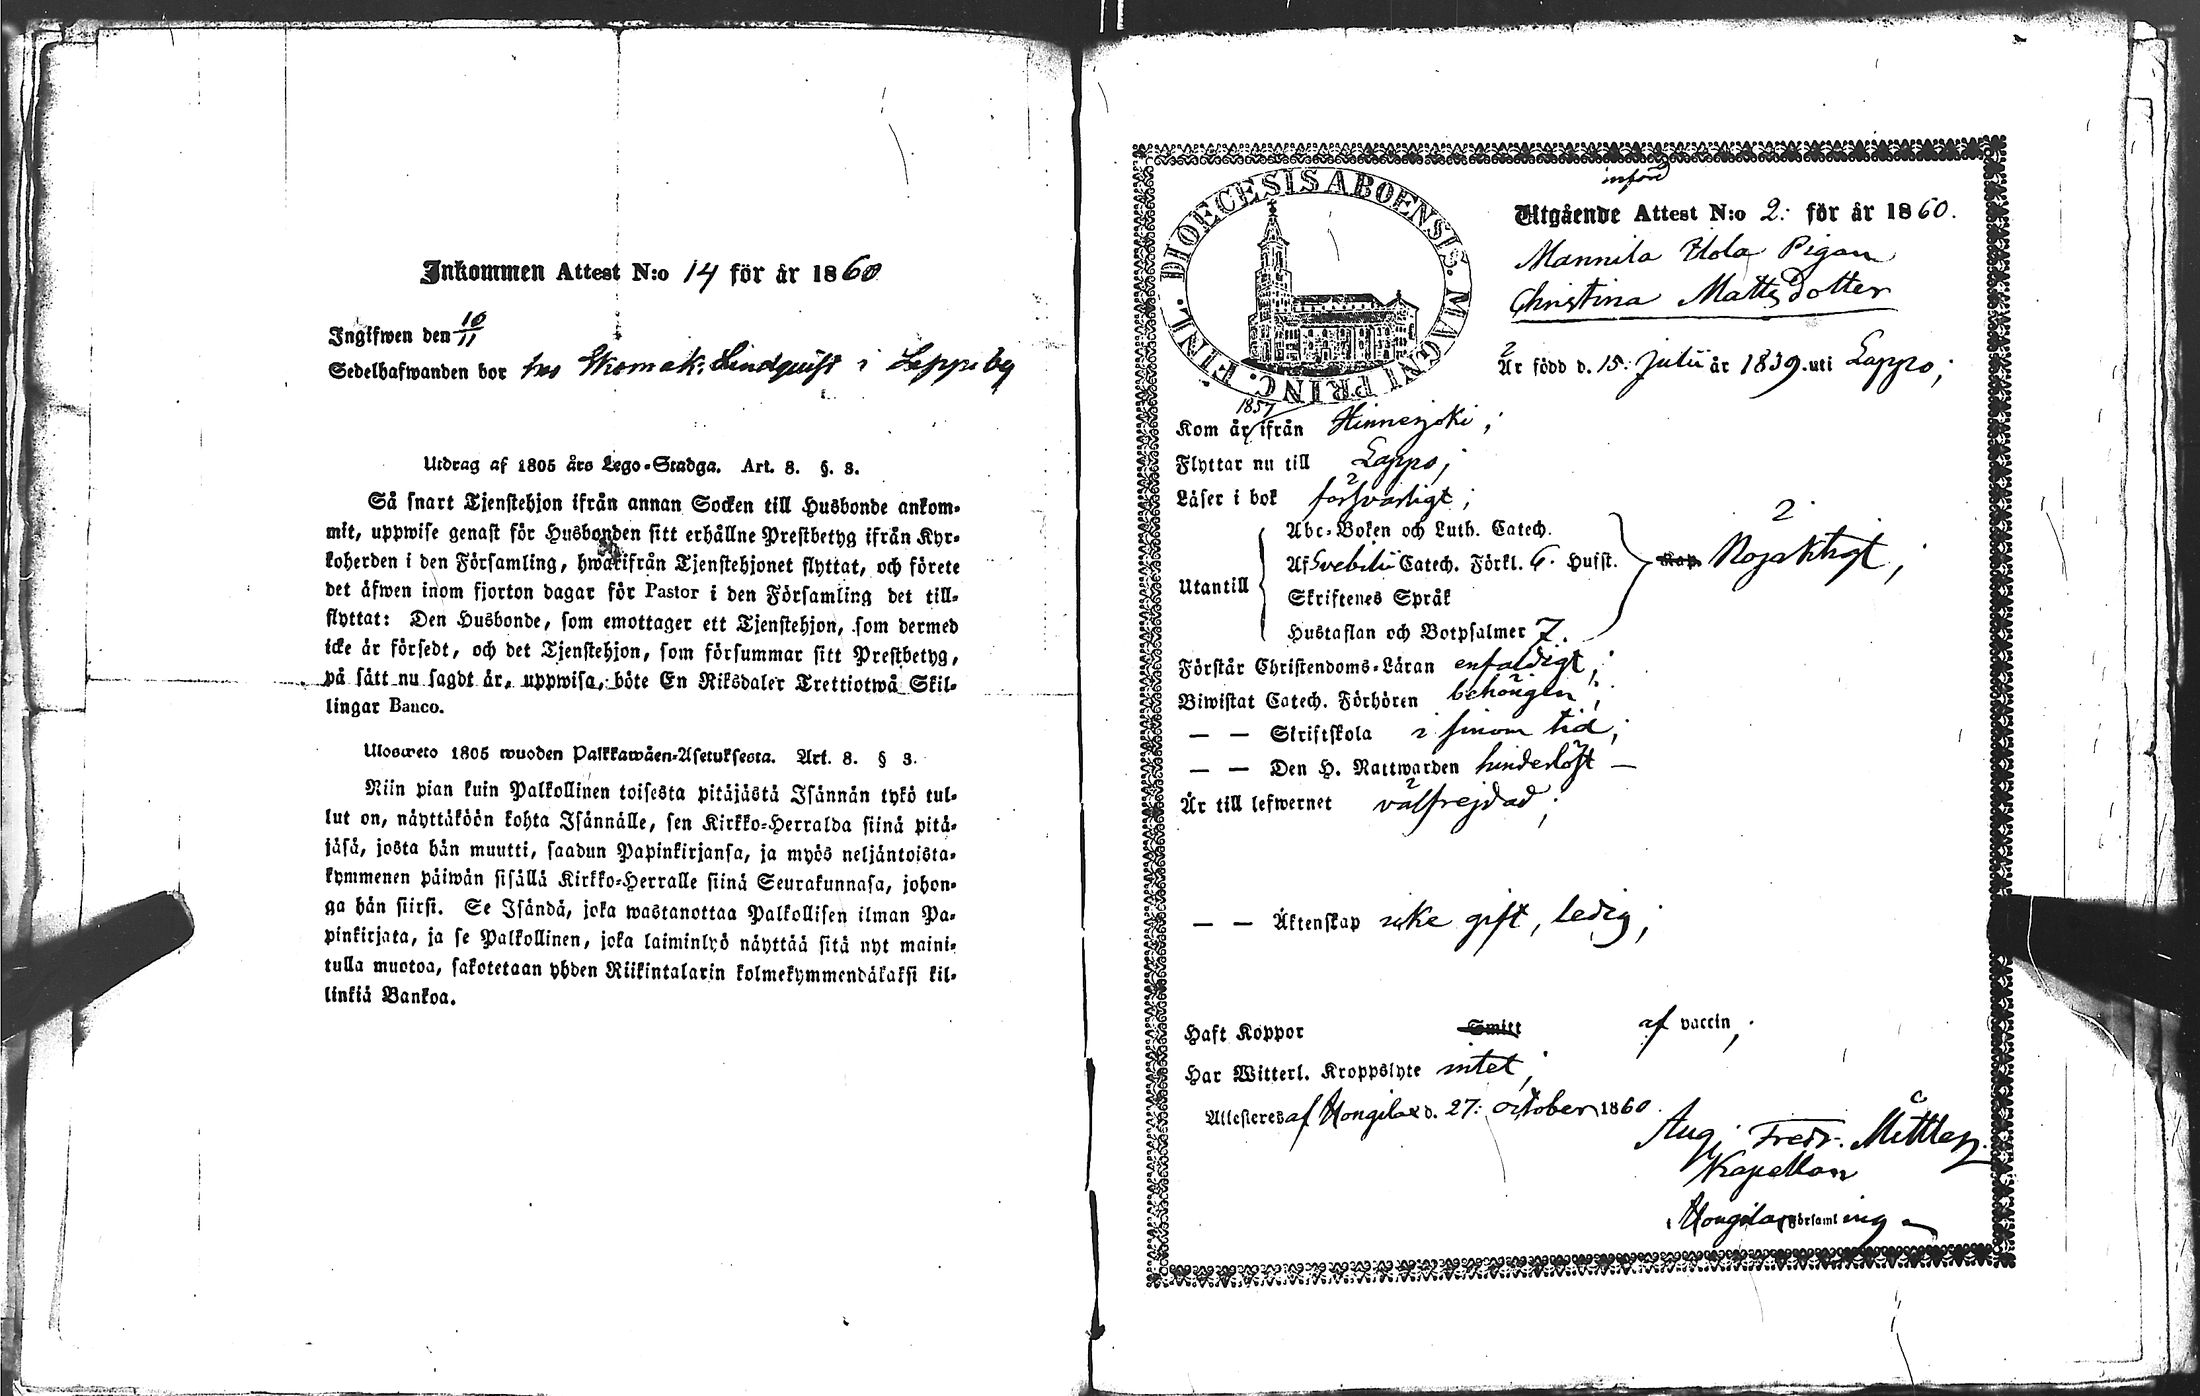 Inkommen Attest N:o 14 för år 1860
Ingifwen den 10/11
Sedelhafwanden bor hos Skomak: Lindquist i Lappo by
Utdrag af 1805 års Lego-Stadga. Art. 8. §. 3.
Så snart Tjenstehjon ifrån annan Socken till Husbonde ankom-
mit, uppwise genast för Husbonden sitt erhållne Prestbetyg ifrån Kyr-
koherden i den Församling, hwarifrån Tjenstehjonet flyttat, och förete
det äfwen inom fjorton dagar för Pastor i den Församling det till-
flyttat: Den Husbonde, som emottager ett Tjenstehjon, som dermed
icke är försedt, och det Tjenstehjon, som försummar sitt Prestbetyg,
på sätt nu sagdt är, uppwisa, böte En Riksdaler Trettiotwå Skil-
lingar Banco.
Ulosweto 1805 wuoden Palkkawäen-Asetuksesta. Art. 8. § 3.
Niin pian kuin Palkollinen toisesta pitäjästä Isännän tykö tul-
lut on, näyttäköön kohta Isännälle, sen Kirkko-Herralda siinä pitä-
jäsä, josta hän muutti, saadun Papinkirjansa, ja myös neljäntoista-
kymmenen päiwän sisällä Kirkko-Herralle siinä Seurakunnasa, johon-
ga hän siirsi. Se Isändä, joka wastanottaa Palkollisen ilman Pa-
pinkirjata, ja se Palkollinen, joka laiminlyö näyttää sitä nyt maini-
tulla muotoa, sakotetaan yhden Riikintalarin kolmekymmendäkaksi kil-
linkiä Bankoa.
FINL. DIOECESIS ABOENSIS. MAGNI PRINC.
införd
Utgående Attest N:o 2: för år 1860.
Mannila Pigan
Christina Mattsdotter
Är född d. 15: Julii år 1839. uti Lappo;
Kom år 1857 ifrån Hinnerjoki;
Flyttar nu till Lappo;
Läser i bok försvarligt;
Utantill
Abc-Boken och Luth. Catech.
Af Svebilii Catech. Förkl. 6. Hufst.
Skriftenes Språk
Hustaflan och Botpsalmer 7.
Kap. Nöjaktigt;
Förstår Christendoms-Läran enfaldigt;
Biwistat Catech. Förhören behörigen;
— — Skriftskola i sinom tid;
— — Den H. Nattwarden hinderlöst —
Är till lefwernet välfrejdad;
— — Äktenskap icke gift, ledig;
Haft Koppor Smitt af vaccin;
Har Witterl. Kroppslyte intet;
Attesteras af Hongilax d. 27: october 1860.
Aug: Fredr.
Kapellan
i Hongilax Församling